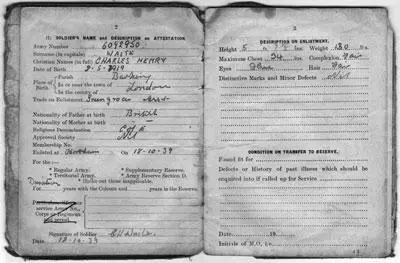 2
(I) SOLDIER'S NAME and DESCRIPTION on ATTESTATION.
Army Number 6092950
Surname (in capitals) WAITE
Christian Names (in full) CHARLES HENRY
Date of Birth 2-5-1919
Place of Birth
Parish Barking
In or near the town of
In the county of London
Trade on Enlistment Greengrocer Asst.
Nationality of Father at Birth British
Nationality of Mother at Birth "
Religious Denomination C of E
Approved Society Nil
Membership No.
Enlisted at On 18-10-39
For the:—
* Regular Army. * Supplementary Reserve.
* Territorial Army. * Army Reserve Section D.
* Strike out those inapplicable.
Duration
For years with the Colours and years in the Reserve.
service Army No.,
Corps or Regiment
Signature of Soldier
Date 18-10-39
DESCRIPTION ON ENLISTMENT.
Height 5 ft. ins. Weight 130 lbs.
Maximum Chest 34 ins. Complexion Fair
Eyes Hair Fair
Distinctive Marks and Minor Defects
CONDITION ON TRANSFER TO RESERVE.
Found fit for
Defects or History of past illness which should be
enquired into if called up for Service
Date 19
Initials of M.O. i/c